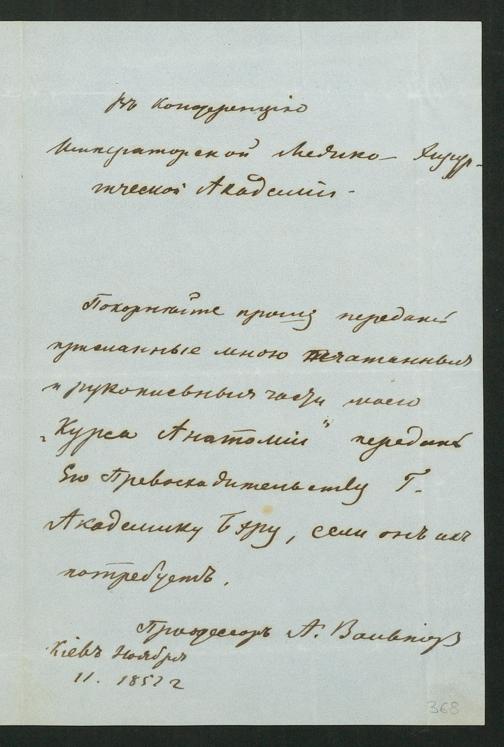 Въ Конференцію
Императорской Медико-Хирур-
гической Академіи.
Покорнѣйше прошу передать
присланные мною печатанныя
и рукописьныя части моего
„Курса Анатоміи" передать
Его Превосходительству Г.
Академику Бэру, если онъ ихъ
потребуетъ.
Профессоръ А.
Кіевъ Ноября
11. 1857 г
368